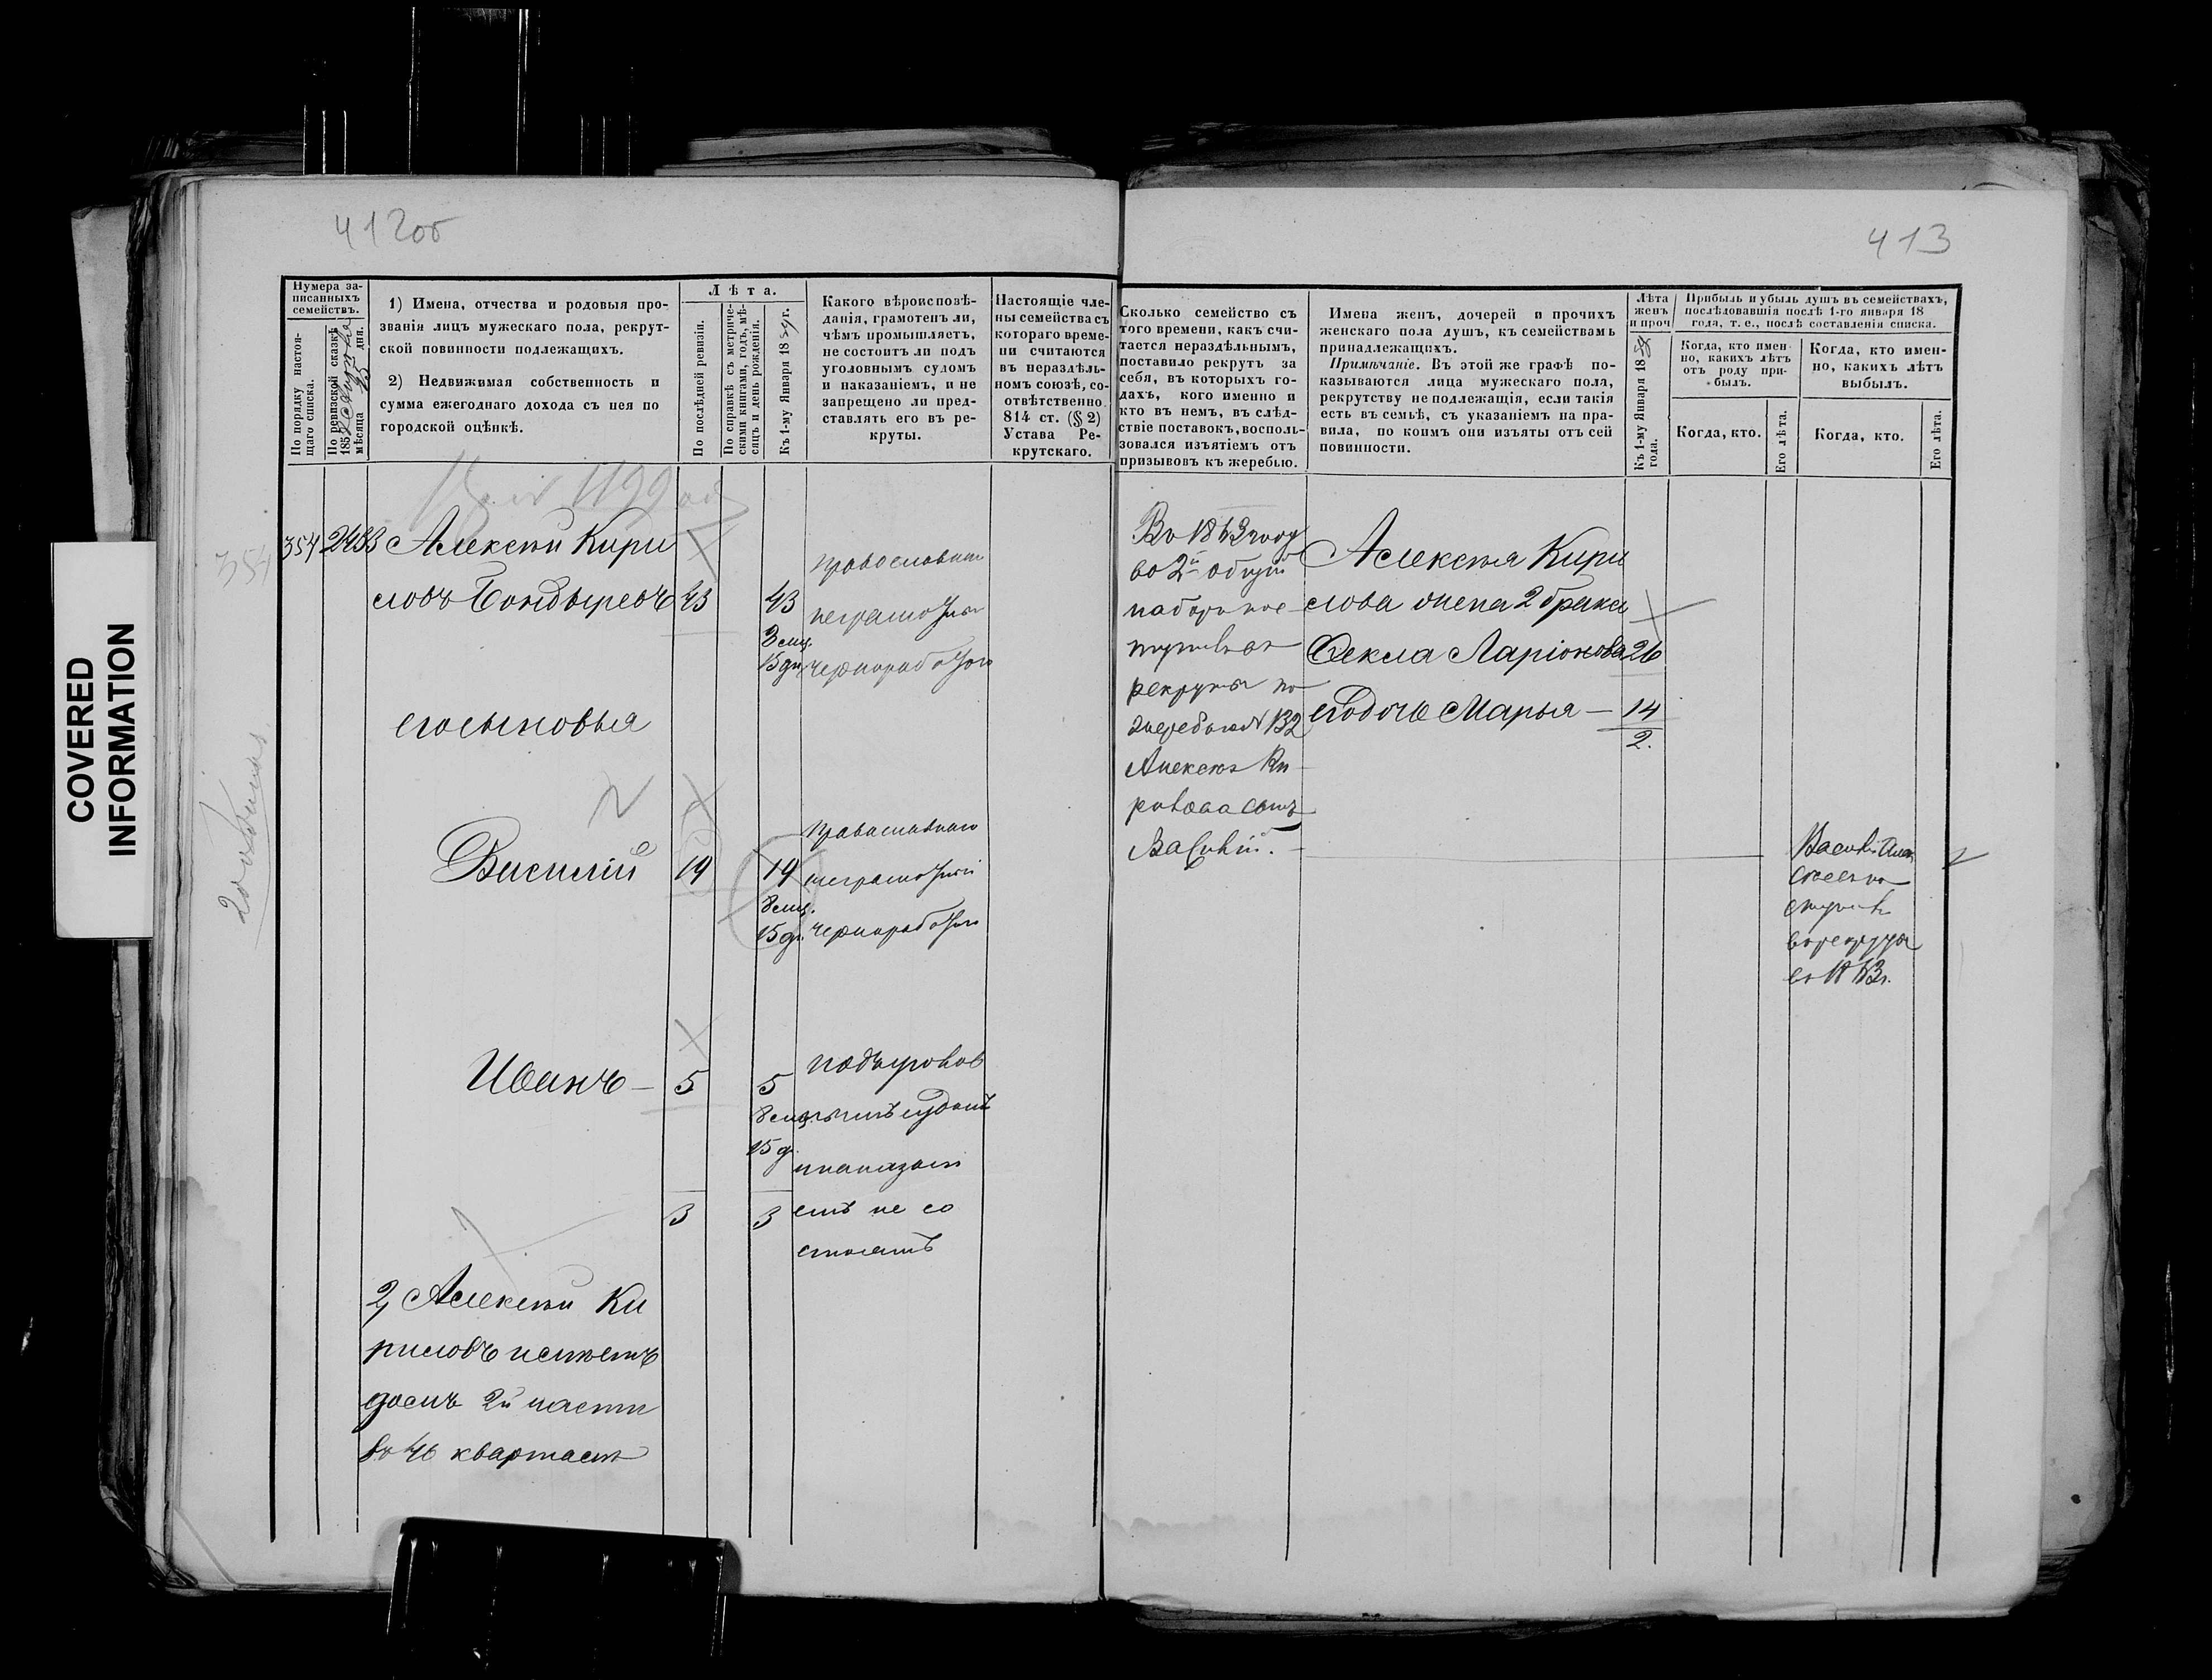 412об
413
COVERED INFORMATION
Нумера записанныхъ семействъ.
По порядку настоящаго списка.
По ревизской сказкѣ 185
мѣсяца 25 дня.
1) Имена, отчества и родовыя прозванія лицъ мужескаго пола, рекрутской повинности подлежащихъ.
2) Недвижимая собственность и сумма ежегоднаго дохода съ нея по городской оцѣнкѣ.
Лѣта.
По послѣдней ревизіи.
По справкѣ съ метрическими книгами, годъ, мѣсяцъ и день рожденія.
Къ 1-му Января 18 г.
Какого вѣроисповѣданія, грамотенъ ли, чѣмъ промышляетъ, не состоитъ ли подъ уголовнымъ судомъ и наказаніемъ, и не запрещено ли представлять его въ рекруты.
Настоящіе члены семейства съ котораго времени считаются въ нераздѣльномъ союзѣ, соотвѣтственно 814 ст. (§ 2) Устава Рекрутскаго.
Сколько семейство съ того времени, какъ считается нераздѣльнымъ, поставило рекрутъ за себя, въ которыхъ годахъ, кого именно и кто въ немъ, въ слѣдствіе поставокъ, воспользовался изъятіемъ отъ призывовъ къ жеребью.
Имена женъ, дочерей и прочихъ женскаго пола душъ, къ семействамъ принадлежащихъ.
Примѣчаніе. Въ этой же графѣ показываются лица мужескаго пола, рекрутству не подлежащія, если такія есть въ семьѣ, съ указаніемъ на правила, по коимъ они изъяты отъ сей повинности.
Лѣта женъ и проч
Къ 1-му Января 18 года.
Прибыль и убыль душъ въ семействахъ, послѣдовавшія послѣ 1-го января 18 года, т. е., послѣ составленія списка.
Когда, кто именно, какихъ лѣтъ отъ роду прибылъ.
Когда, кто именно, какихъ лѣтъ выбылъ.
Когда, кто.
Его лѣта.
Когда, кто.
Его лѣта.
354
354 2483 Алексѣй Кири
ловъ Бондыревъ 43 43
3 мц.
15 дн.
православнаго
неграмотный
чернорабочій
его сыновья
Василій 19 19
8 мц.
15 дн.
православнаго
неграмотный
чернорабочій
Иванъ — 5 5
8 мц.
15 д.
подъ уголов
нымъ судомъ
и наказані
емъ не со
стоятъ
3 3
2, Алексѣй Ки
риловъ имѣетъ
домъ 2й части
въ 46 кварталѣ
Въ 1863 году
во 2й общій
наборъ пос
тупилъ въ
рекруты по
жеребью № 132
Алексѣя Ки
рилова сынъ
Василій.
Алексѣя Кири
лова жена 2 брака
Ѳекла Ларіонова 26
его дочь Марья — 14
2.
Василій Алек
сѣевъ по
ступилъ
въ рекруты
въ 1863 г.